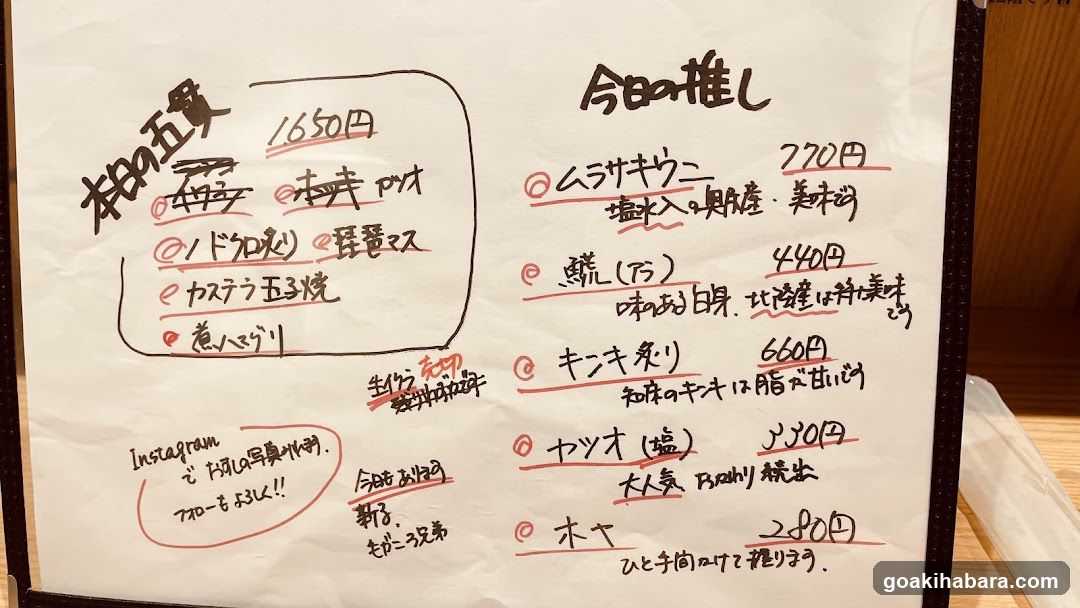 本日の五貫
1.650円
カツオ
ノドクロ炙り 琵琶マス
カステラ玉子焼
煮ハマグリ
生イクラ 売切
Instagram
でお寿しの写真
フォローもよろしく!!
今日もあります
新子、
今日の推し
ムラサキウニ 770円
塩水入 産・美味です
鱫(アラ) 440円
味のある白身、北陸産は特に美味
です
キンキ炙り 660円
知床のキンキは脂が甘いです
カツオ(塩) 330円
大人気 おかわり続出
ホヤ 280円
ひと手間かけて握ります.
goakihabara.com